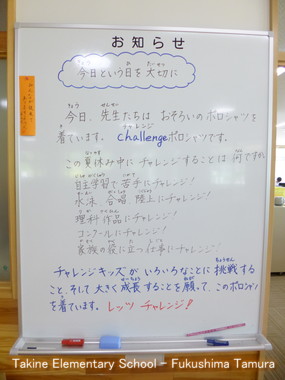 お知らせ
今日という日を大切に
今日、先生たちはおそろいのポロシャツを
着ています。challengeポロシャツです。
この夏休み中にチャレンジすることは何ですか
自主学習で苦手にチャレンジ!
水泳 合唱 陸上にチャレンジ!
理科作品にチャレンジ!
コンクールにチャレンジ!
家族の役に立つ仕事にチャレンジ!
チャレンジキッズがいろいろなことに挑戦する
こと、そして大きく成長することを願って、このポロシャツ
を着ています。レッツ チャレンジ!!
Takine Elementary School - Fukushima Tamura